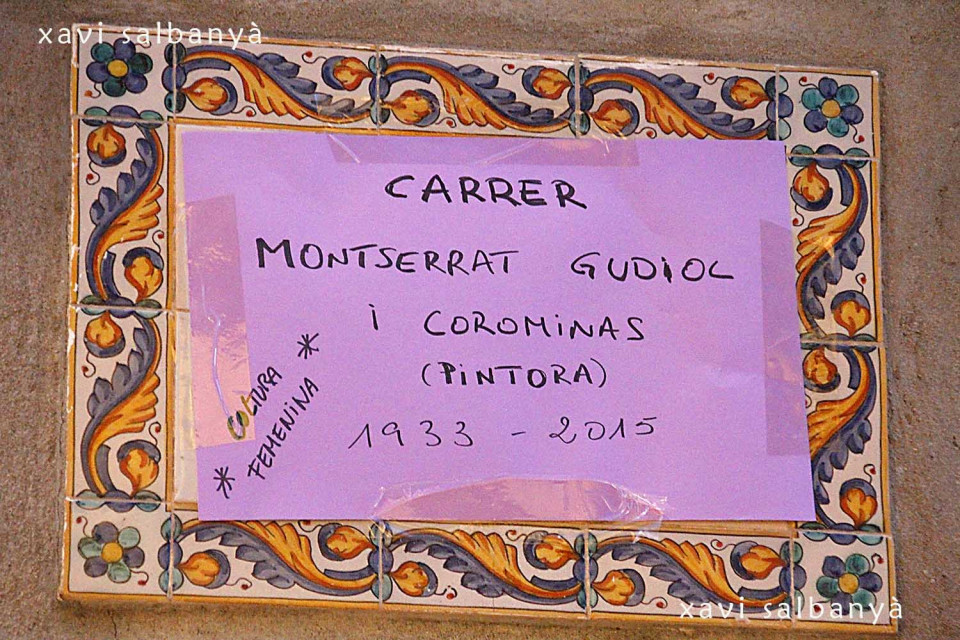 xavi salbanyà
CARRER
MONTSERRAT GUDIOL
i COROMINAS
(PINTORA)
1933 - 2015
* COLTURA *
FEMENINA
xavi salbanyà